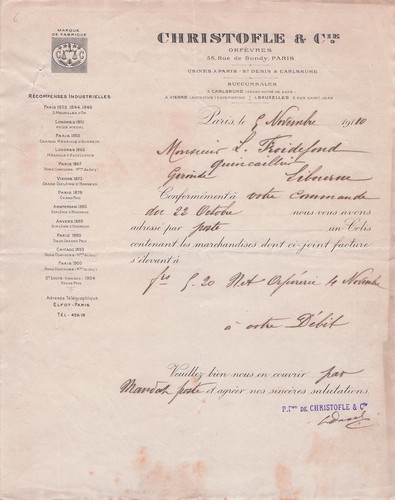 6
MARQUE
DE FABRIQUE
CHRISTOFLE & CIE
ORFÈVRES
56, Rue de Bondy, PARIS
USINES À PARIS - ST DENIS & CARLSRUHE
SUCCURSALES
À CARLSRUHE
À VIENNE
À BRUXELLES
RÉCOMPENSES INDUSTRIELLES
PARIS 1839, 1844, 1849
LONDRES 1851
PARIS 1855
LONDRES 1862
PARIS 1867
VIENNE 1873
PARIS 1878
GRAND PRIX
AMSTERDAM 1883
DIPLÔME D'HONNEUR
ANVERS 1885
DIPLÔME D'HONNEUR
PARIS 1889
CHICAGO 1893
PARIS 1900
ST LOUIS 1904
GRAND PRIX
Adresse Télégraphique
ELFOY-PARIS
TÉL.
Paris, le 5 Novembre 1910
Monsieur L. Froidefond
Quincaillier
Gironde Libourne
Conformément à votre Commande
du 22 Octobre nous vous avons
adressé par poste un Colis
contenant les marchandises dont ci-joint facture
s'élevant à
fcs 5.20 Net Orfèvrerie 4 Novembre
à votre Débit
Veuillez bien nous en couvrir par
Mandat poste et agréer nos sincères salutations.
P. DE CHRISTOFLE & Cie